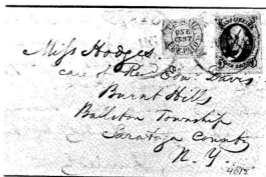 ONE
CENT
Miss Hodges.
care of Rev Edwd Davis
Burnt Hills
Ballston Township
Saratoga County
N. Y.